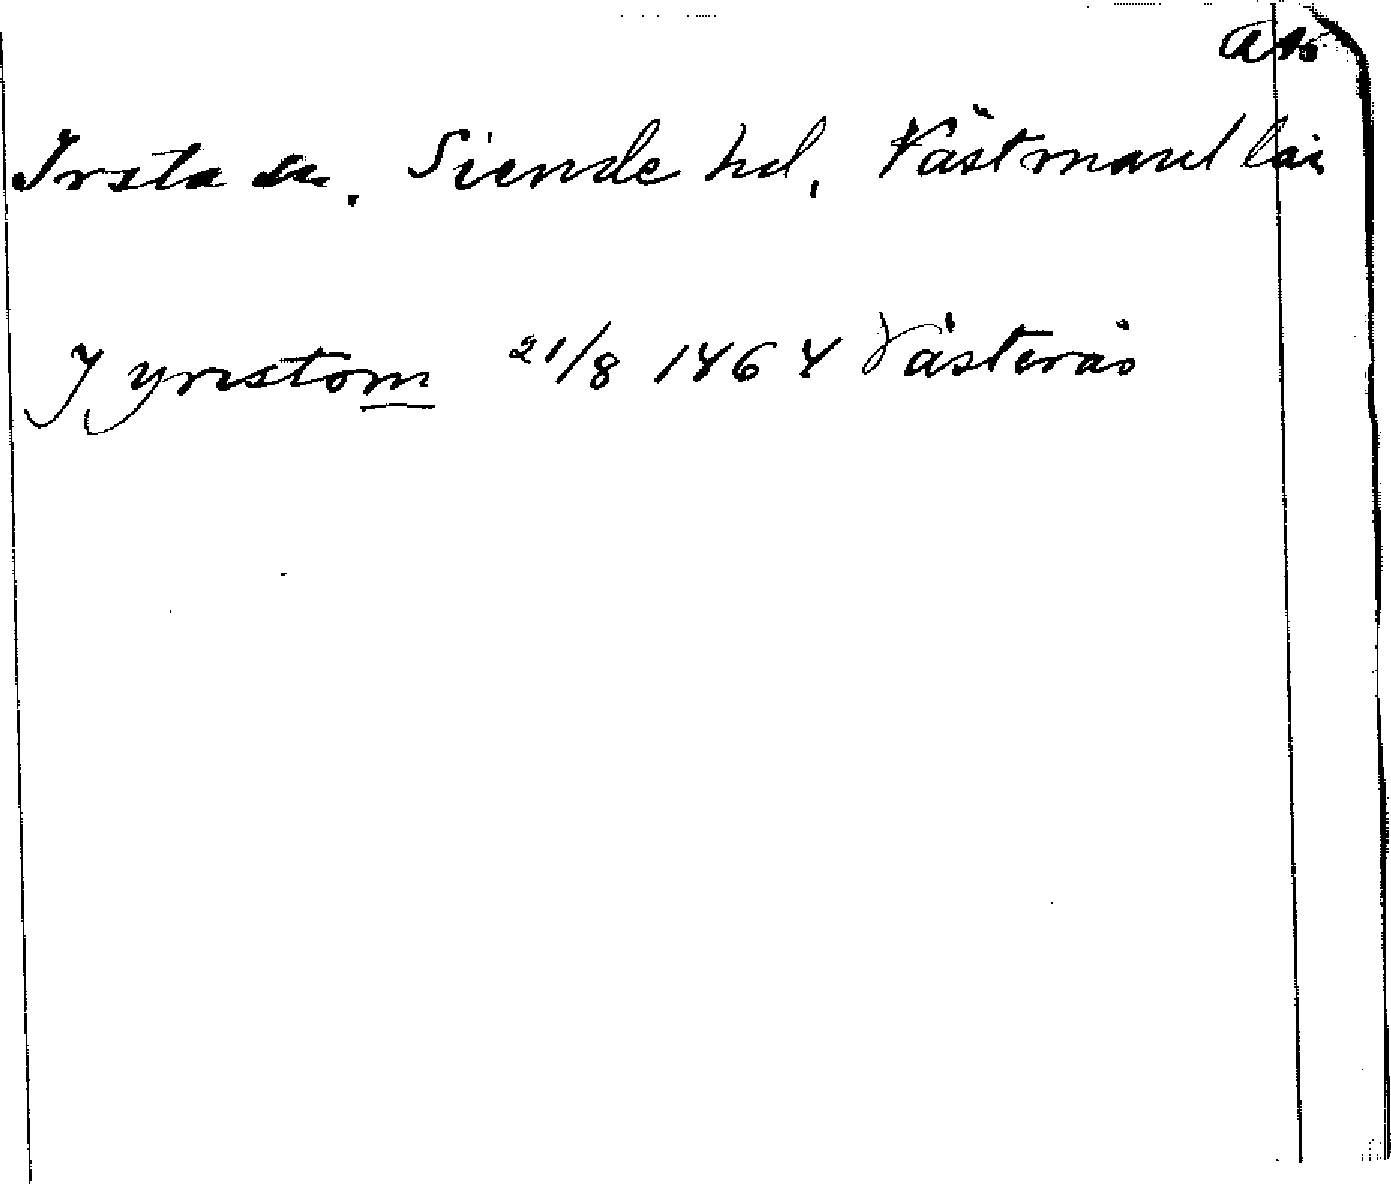 Irsta sn. Siende hd, Västmanl län
J yrestom 21/8 1464 Västerås